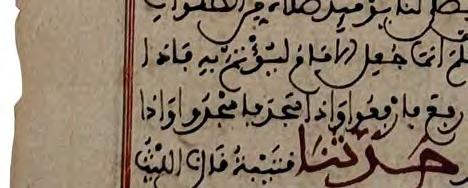 لنا يومئذ صلاة من الصلوات
انما جعل الامام ليؤتم به فاذا
ركع فاركعوا واذا سجد فاسجدوا واذا
حدثنا قتيبة قال الليث